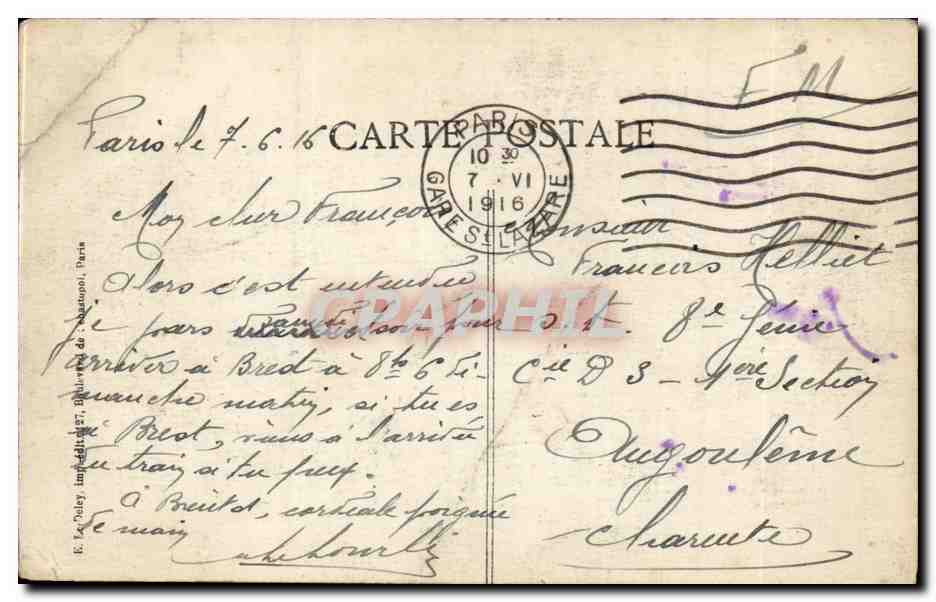 F M
CARTE POSTALE
PARIS
10 30
7 VI
1916
GARE St LAZARE
Paris le 7.6.16
Moy cher François
Alors c'est entendu
je pars samedi soir pour
arriver à Brest à 8h6 di-
manche matin, si tu es
à Brest, viens à l'arrivée
du train si tu peux.
à Bientôt, cordiale poignée
de main
Monsieur
François Helliet
s.t. 8e Génie
Cie D 3 - 1ère Section
Angoulême
Charente
E. Le Deley, imp.-édit., 127, Boulevard de Sébastopol, Paris
CPAPHIL